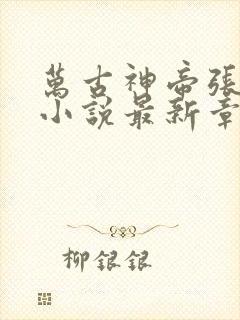 萬古神帝張
小說最新章
柳銀銀